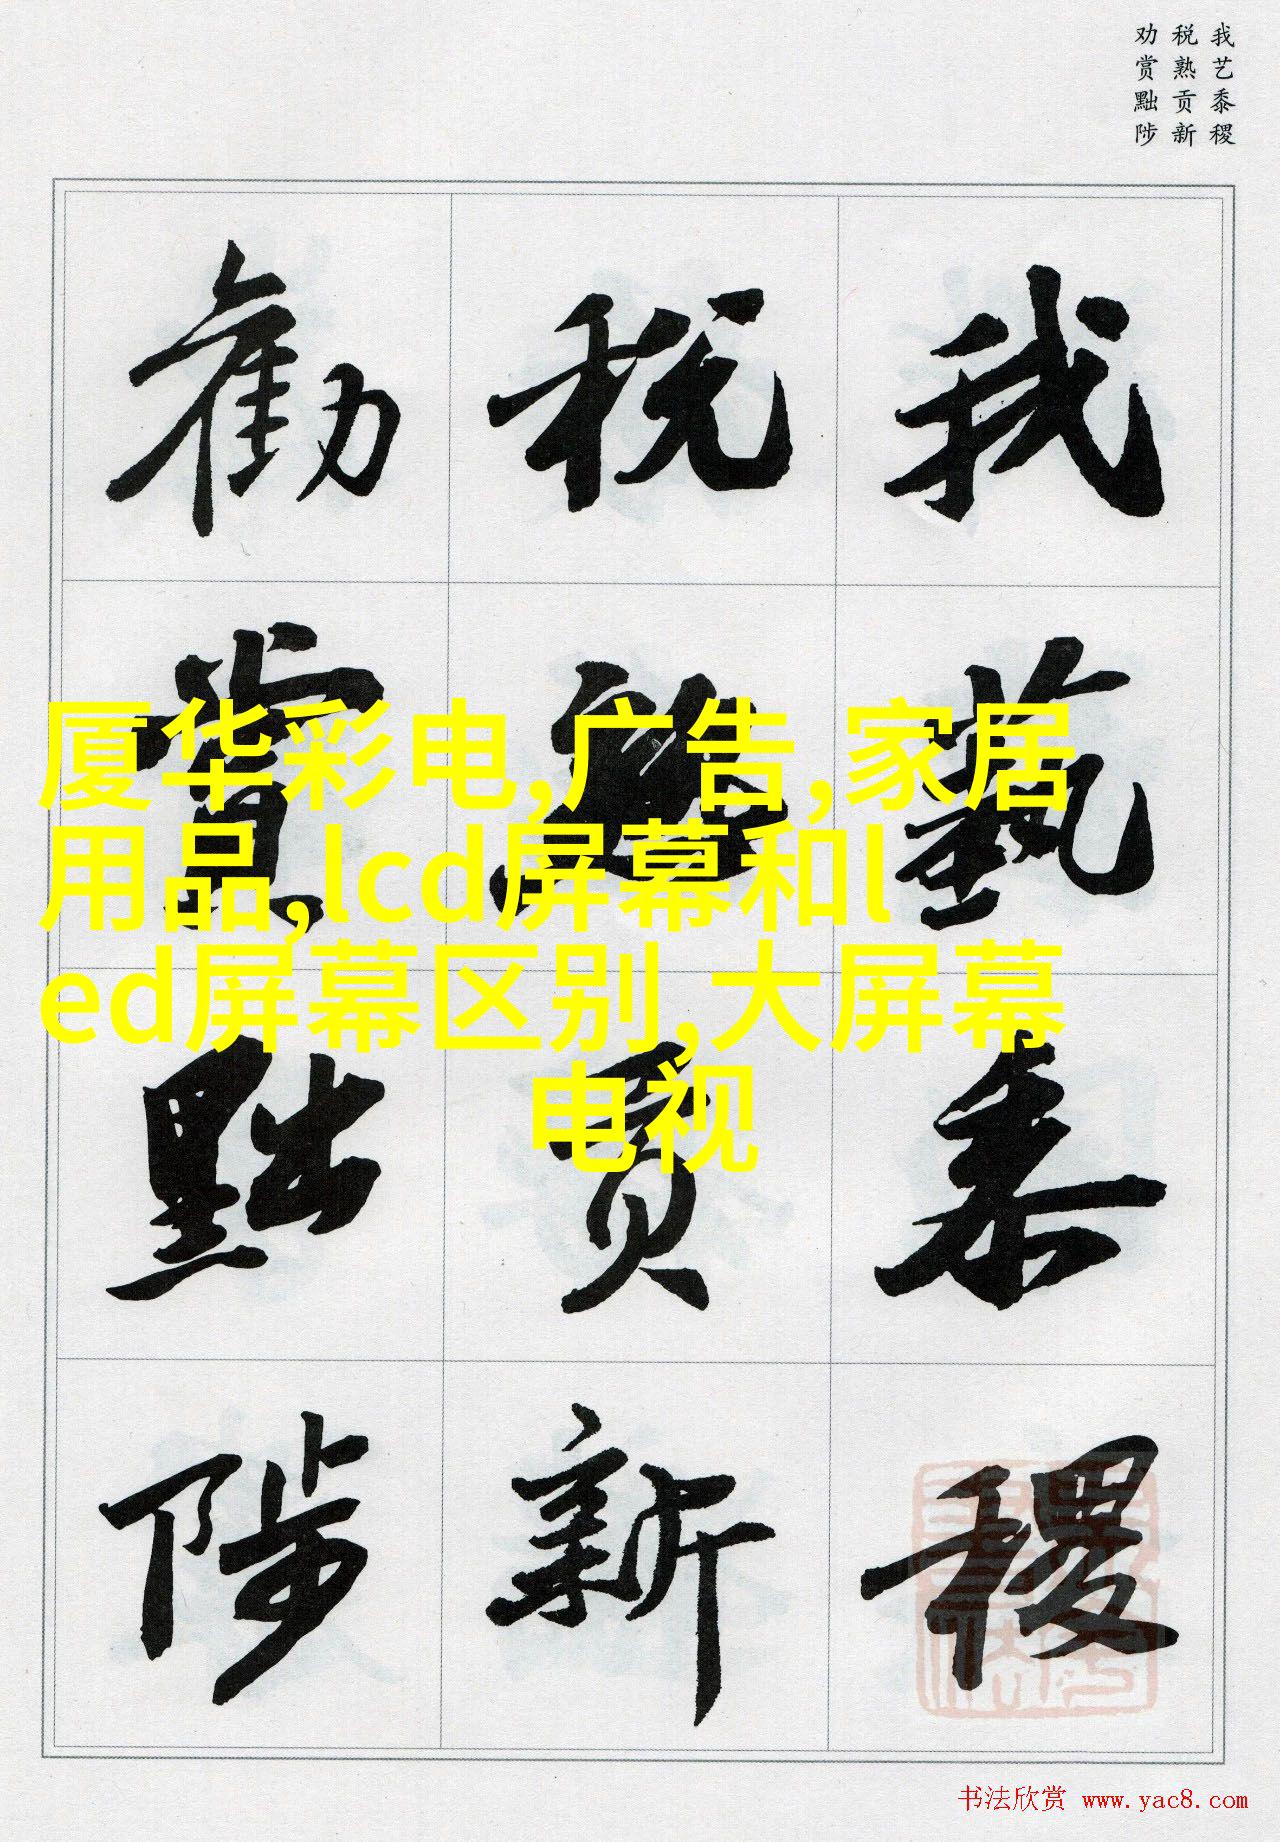 我艺黍稷
税熟贡新
劝赏黜陟
我藝黍稷
稅熟貢新
勸賞黜陟
厦华彩电,广告,家居
用品,lcd屏幕和l
ed屏幕区别,大屏幕
电视
书法欣赏 www.yac8.com